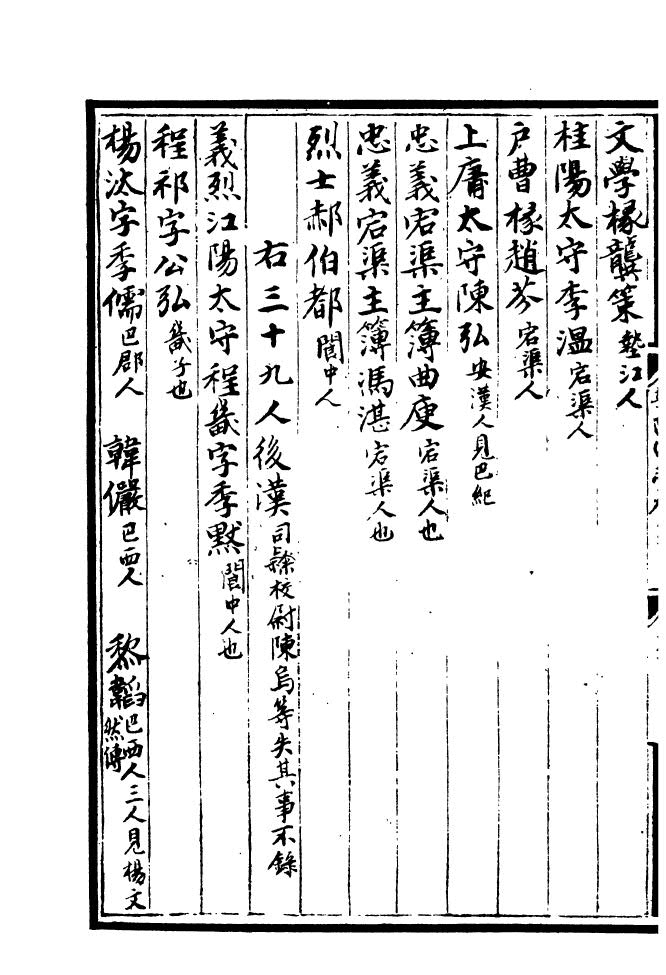 文學掾龔策墊江人
桂陽太守李溫宕渠人
戶曹掾趙芬宕渠人
上庸太守陳弘安漢人見巴紀
忠義宕渠主簿曲庾宕渠人也
忠義宕渠主簿馮湛宕渠人也
烈士郝伯都閬中人
右三十九人後漢司隸校尉陳烏等失其事不錄
義烈江陽太守程畿字季默閬中人也
程祁字公弘畿子也
楊汰字季儒巴郡人 韓儼巴西人 黎韜巴西人三人見楊文然傳